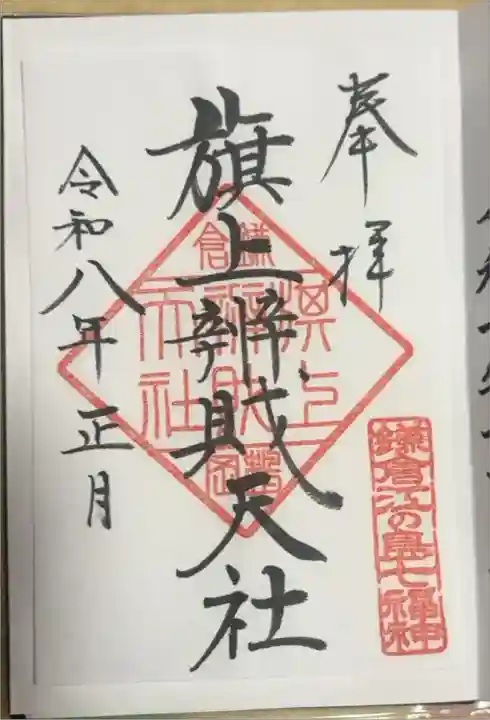 奉拝
旗上辨財天社
令和八年正月
鎌倉
旗上
辨財
天社
鎌倉江の島七福神